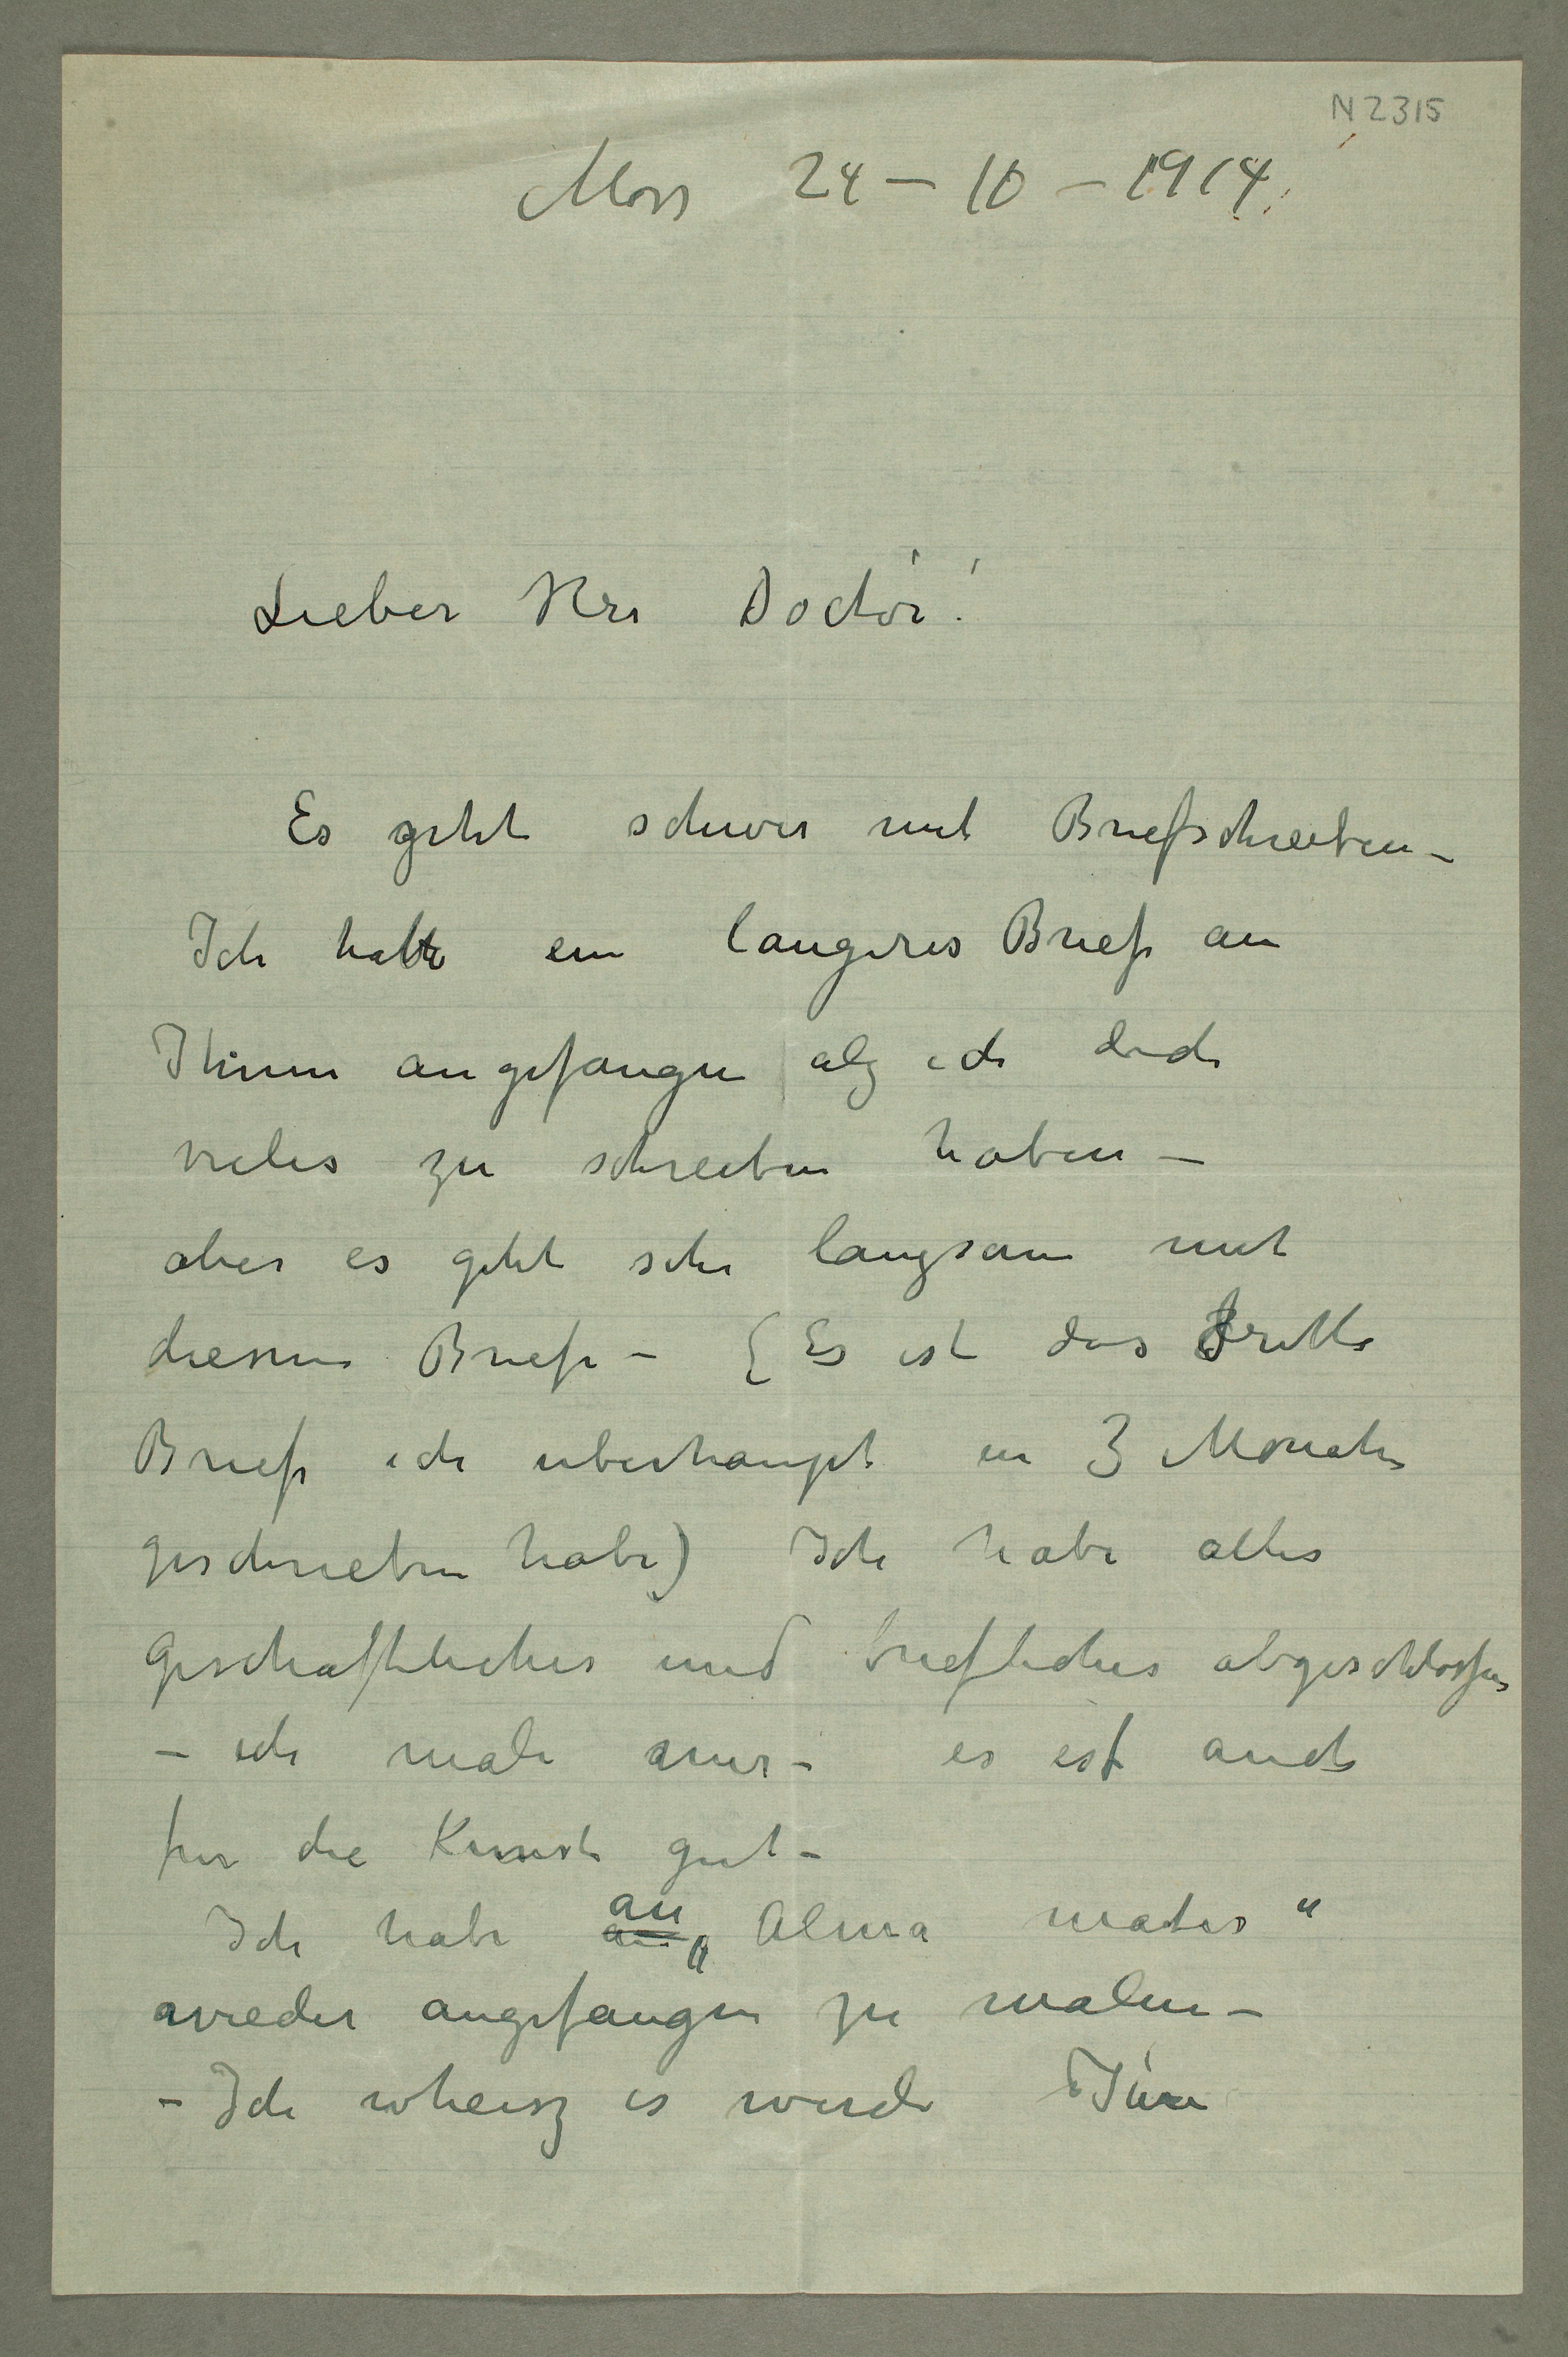 N 2315
Moss 24 – 10 – 1914.
Lieber Herr Doctor!
Es geht schwer mit Briefschreiben –
Ich hatte ein langeres Brief an
Ihnen angefangen alz ich doch
vieles zu schreiben haben –
aber es geht sehr langsam mit
diesem Brefe – (Es ist das dritte
Brief ich uberhaupt in 3 Monate
geschrieben habe) Ich habe alles
geschaftliches und briefliches abgeschlossen
– ich male nur – es ist auch
fur die Kunst gut –
Ich habe an „Alma mater“
wieder angefangen zu malen –
– Ich wheisz es wurde